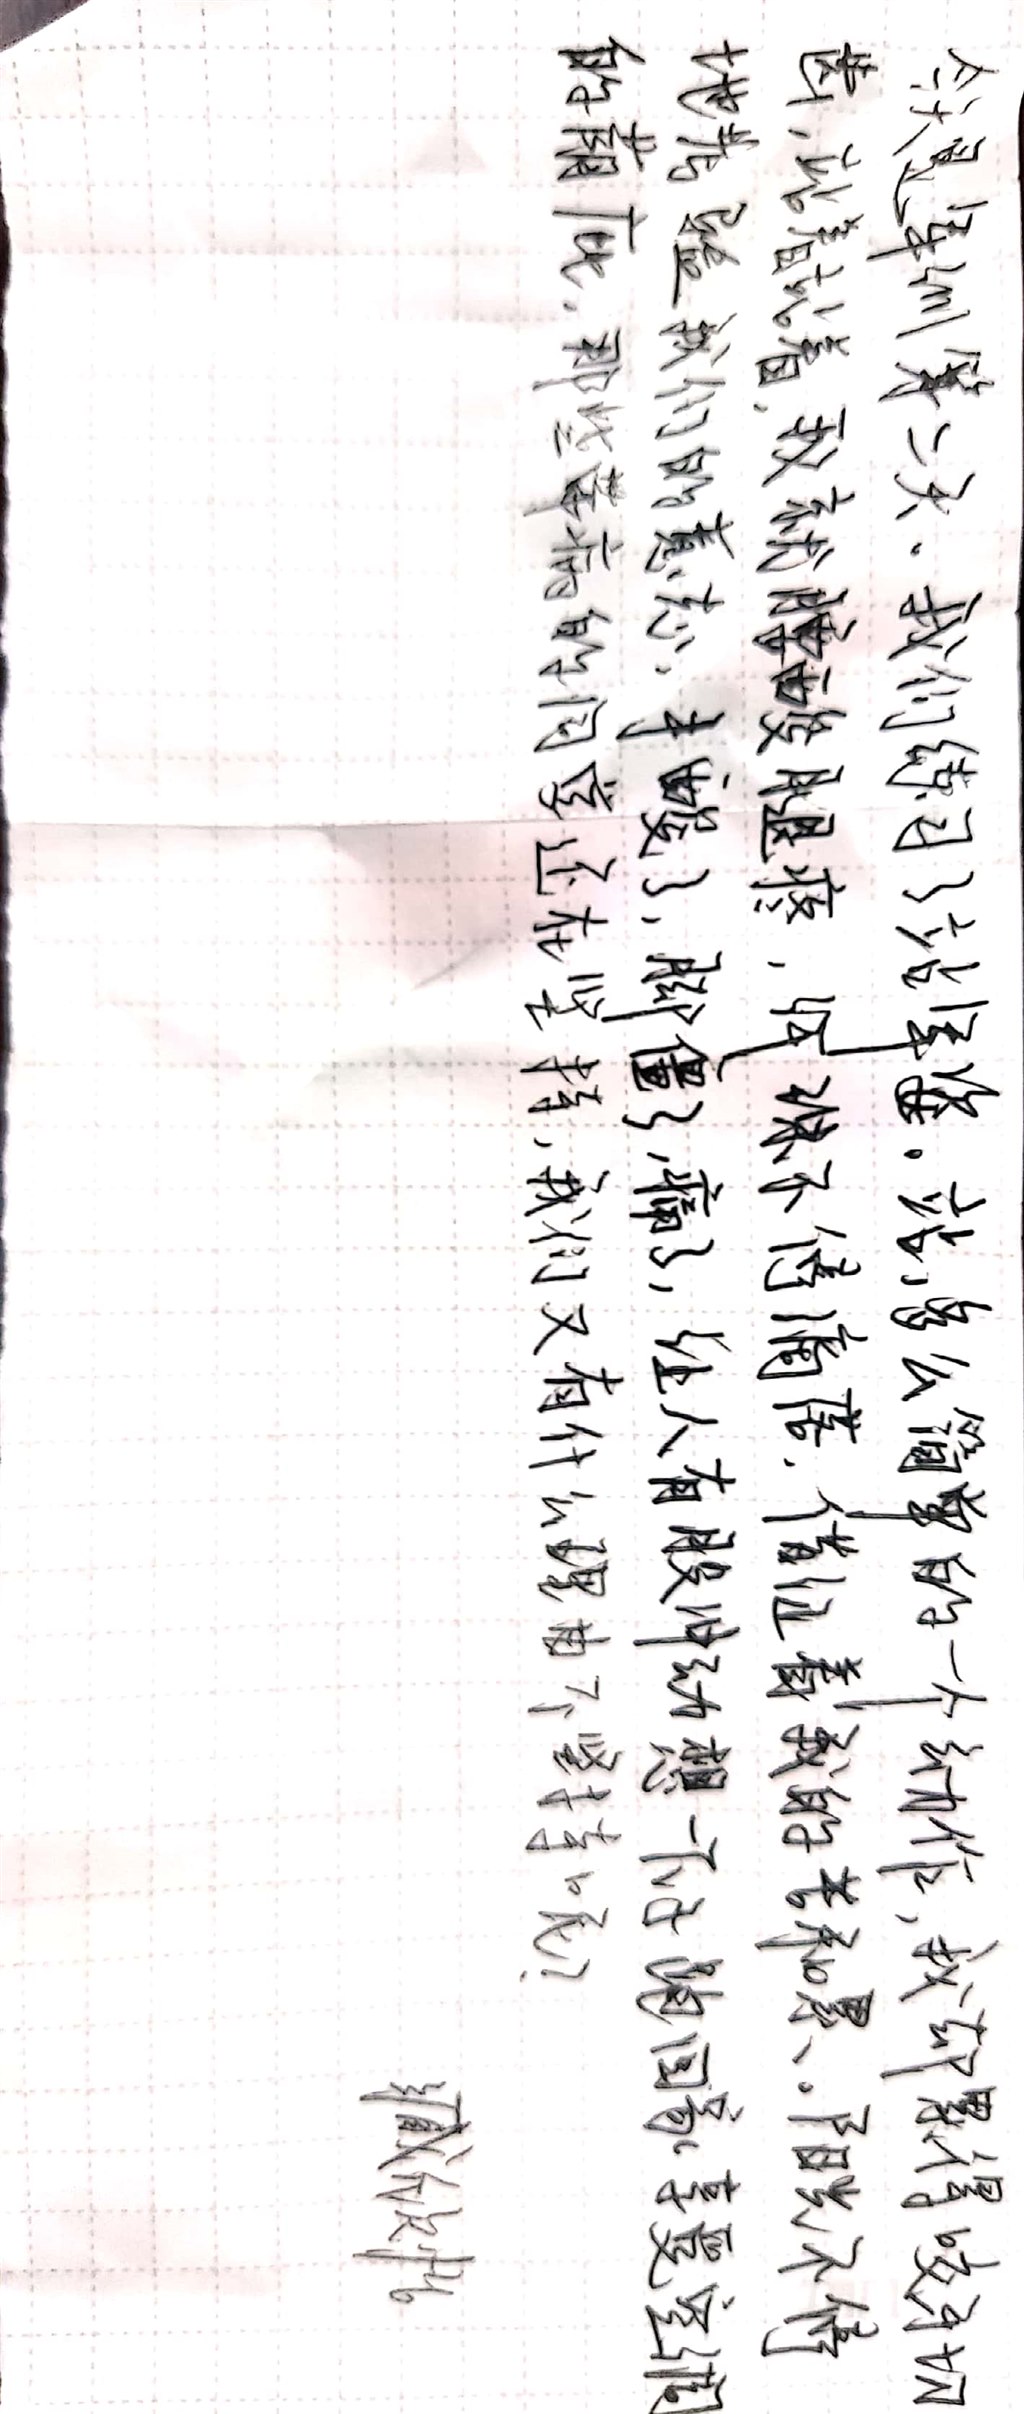 今天是军训第二天。我们练习了站军姿。站,多么简单的一个动作,我却累得咬牙切
齿,站着站着,我就腰酸腿疼,汗珠不停滴落。借证着我的苦和累、。阳光不停
地背蹉我们的意志,手酸了,脚僵了,痛了,让人有股冲动想一下子跑回家,享受空调
的荫庇,那些带病的同学还在坚持,我们又有什么理由不坚持呢?
臧欣